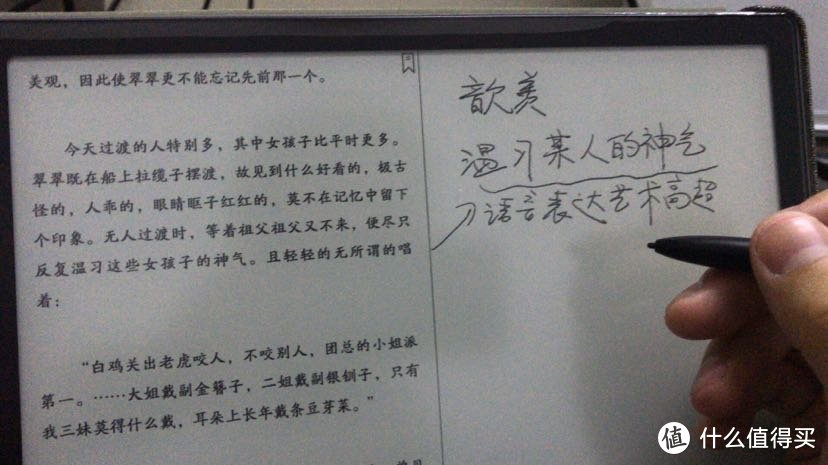 美观，因此使翠翠更不能忘记先前那一个。
今天过渡的人特别多，其中女孩子比平时更多。
翠翠既在船上拉缆子摆渡，故见到什么好看的，极古
怪的，人乖的，眼睛眶子红红的，莫不在记忆中留下
个印象。无人过渡时，等着祖父祖父又不来，便尽只
反复温习这些女孩子的神气。且轻轻的无所谓的唱
着：
“白鸡关出老虎咬人，不咬别人，团总的小姐派
第一。……大姐戴副金簪子，二姐戴副银钏子，只有
我三妹莫得什么戴，耳朵上长年戴条豆芽菜。”
歆羡
温习某人的神气
语言表达艺术高超
值 什么值得买